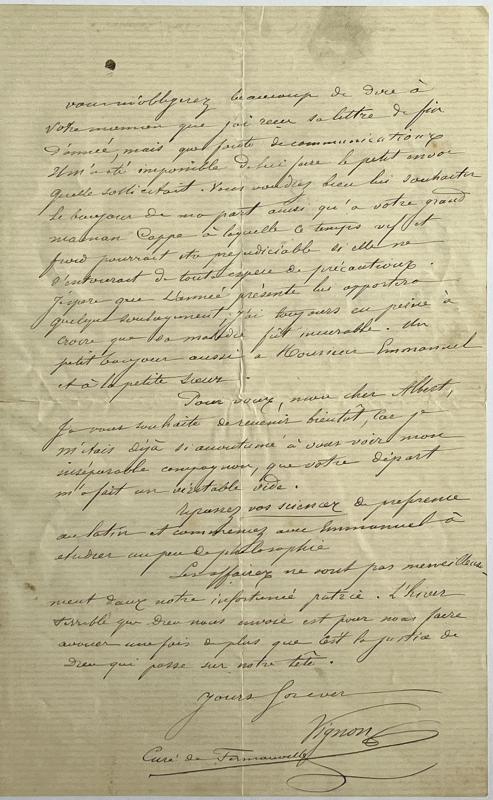 vous m'obligerez beaucoup de dire à
votre maman que j'ai reçu sa lettre de fin
d'année, mais que faute de communications
il m'a été impossible de lui faire le petit envoi
qu'elle sollicitait. Vous voudrez bien lui souhaiter
le bonjour de ma part ainsi qu'à votre grand
maman Cappe à laquelle ce temps vif et
froid pourrait être préjudiciable si elle ne
s'entourait de toute espèce de précautions.
J'espère que l'année présente lui apportera
quelque soulagement, j'ai toujours eu peine à
croire que sa maladie fût incurable. Un
petit bonjour aussi à Monsieur Emmanuel
et à la petite sœur.
Pour vous, mon cher Albert,
Je vous souhaite de revenir bientôt car je
m'étais déjà si accoutumé à vous voir mon
inséparable compagnon, que votre départ
m'a fait un véritable vide.
Repassez vos sciences de préférence
au latin et commencez avec Emmanuel à
étudier un peu de philosophie
Les affaires ne sont pas merveilleuse-
ment dans notre infortunée patrie. L'hiver
terrible que Dieu nous envoie est pour nous faire
avouer une fois de plus que c'est la justice de
Dieu qui passe sur notre tête.
Yours forever
Vignon
Curé de Fermanville